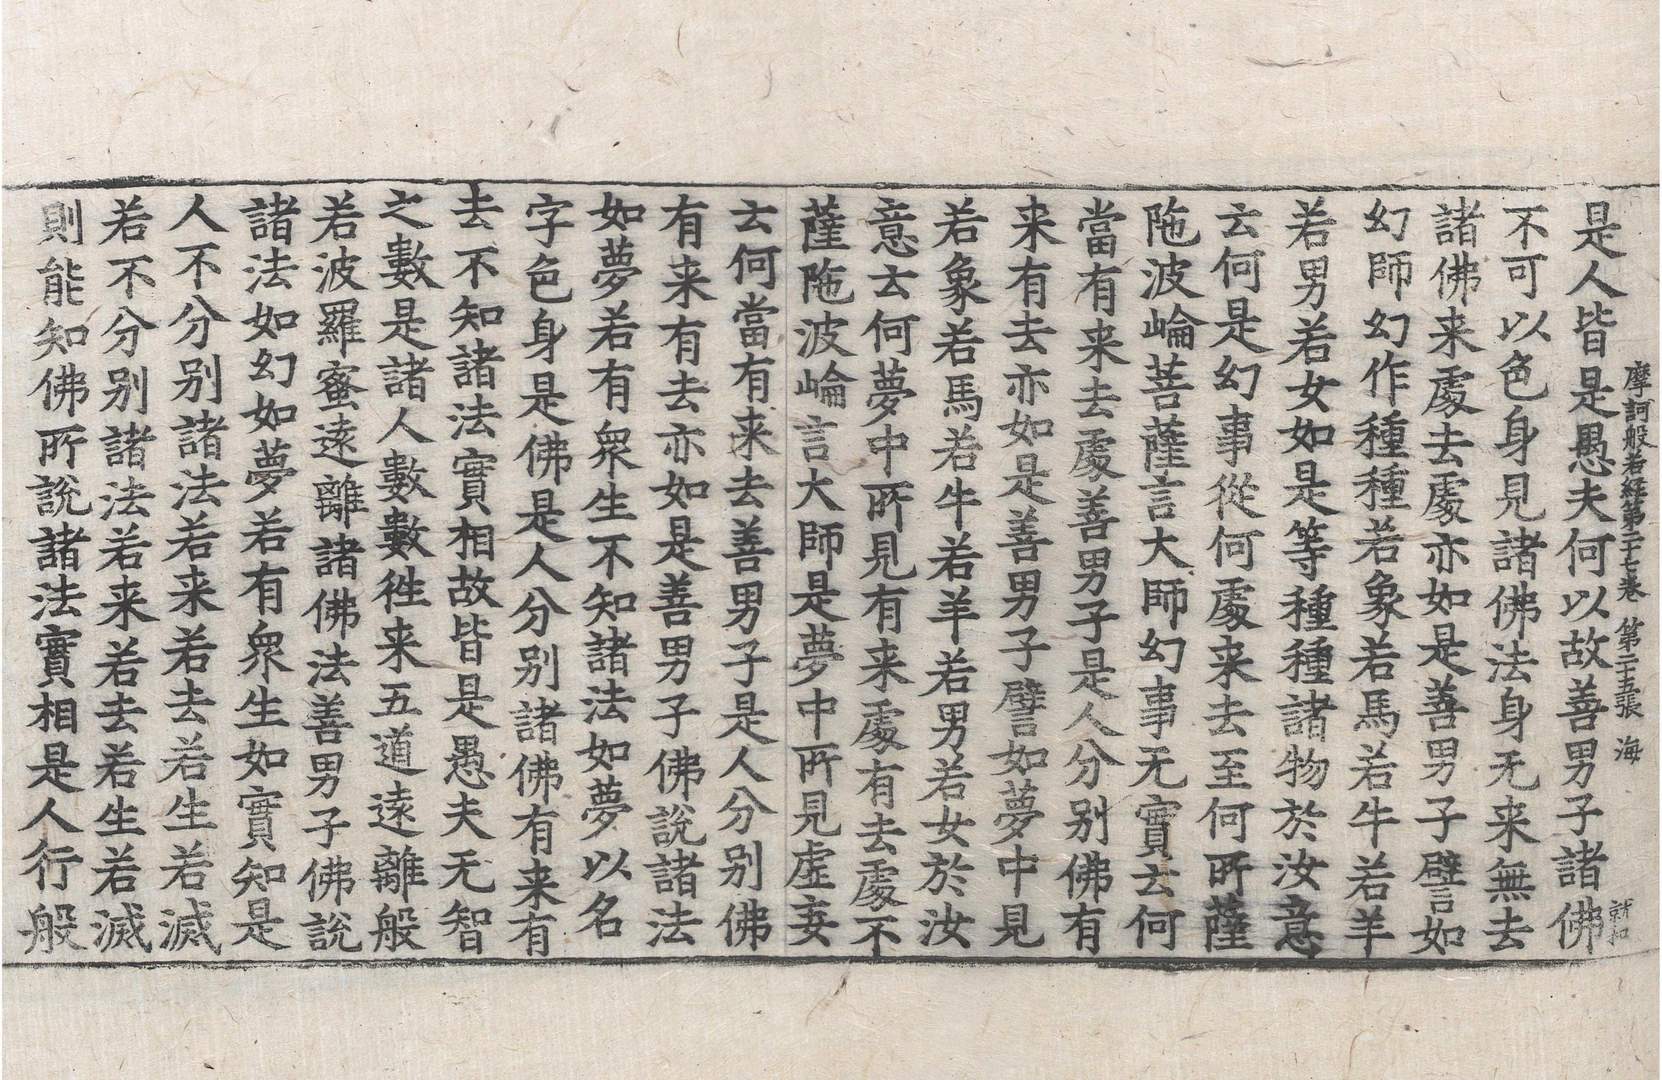 摩訶般若経第二十七卷 第二十五張 海
是人皆是愚夫何以故善男子諸佛
不可以色身見諸佛法身无来無去
諸佛来處去處亦如是善男子譬如
幻師幻作種種若象若馬若牛若羊
若男若女如是等種種諸物於汝意
云何是幻事從何處来去至何所薩
陁波崘菩薩言大師幻事无實云何
當有来去處善男子是人分别佛有
来有去亦如是善男子譬如夢中見
若象若馬若牛若羊若男若女於汝
意云何夢中所見有来處有去處不
薩陁波崘言大師是夢中所見虚妄
云何當有来去善男子是人分别佛
有来有去亦如是善男子佛說諸法
如夢若有衆生不知諸法如夢以名
字色身是佛是人分别諸佛有来有
去不知諸法實相故皆是愚夫无智
之數是諸人數數徃来五道遠離般
若波羅蜜遠離諸佛法善男子佛說
諸法如幻如夢若有衆生如實知是
人不分别諸法若来若去若生若滅
若不分别諸法若来若去若生若滅
則能知佛所說諸法實相是人行般